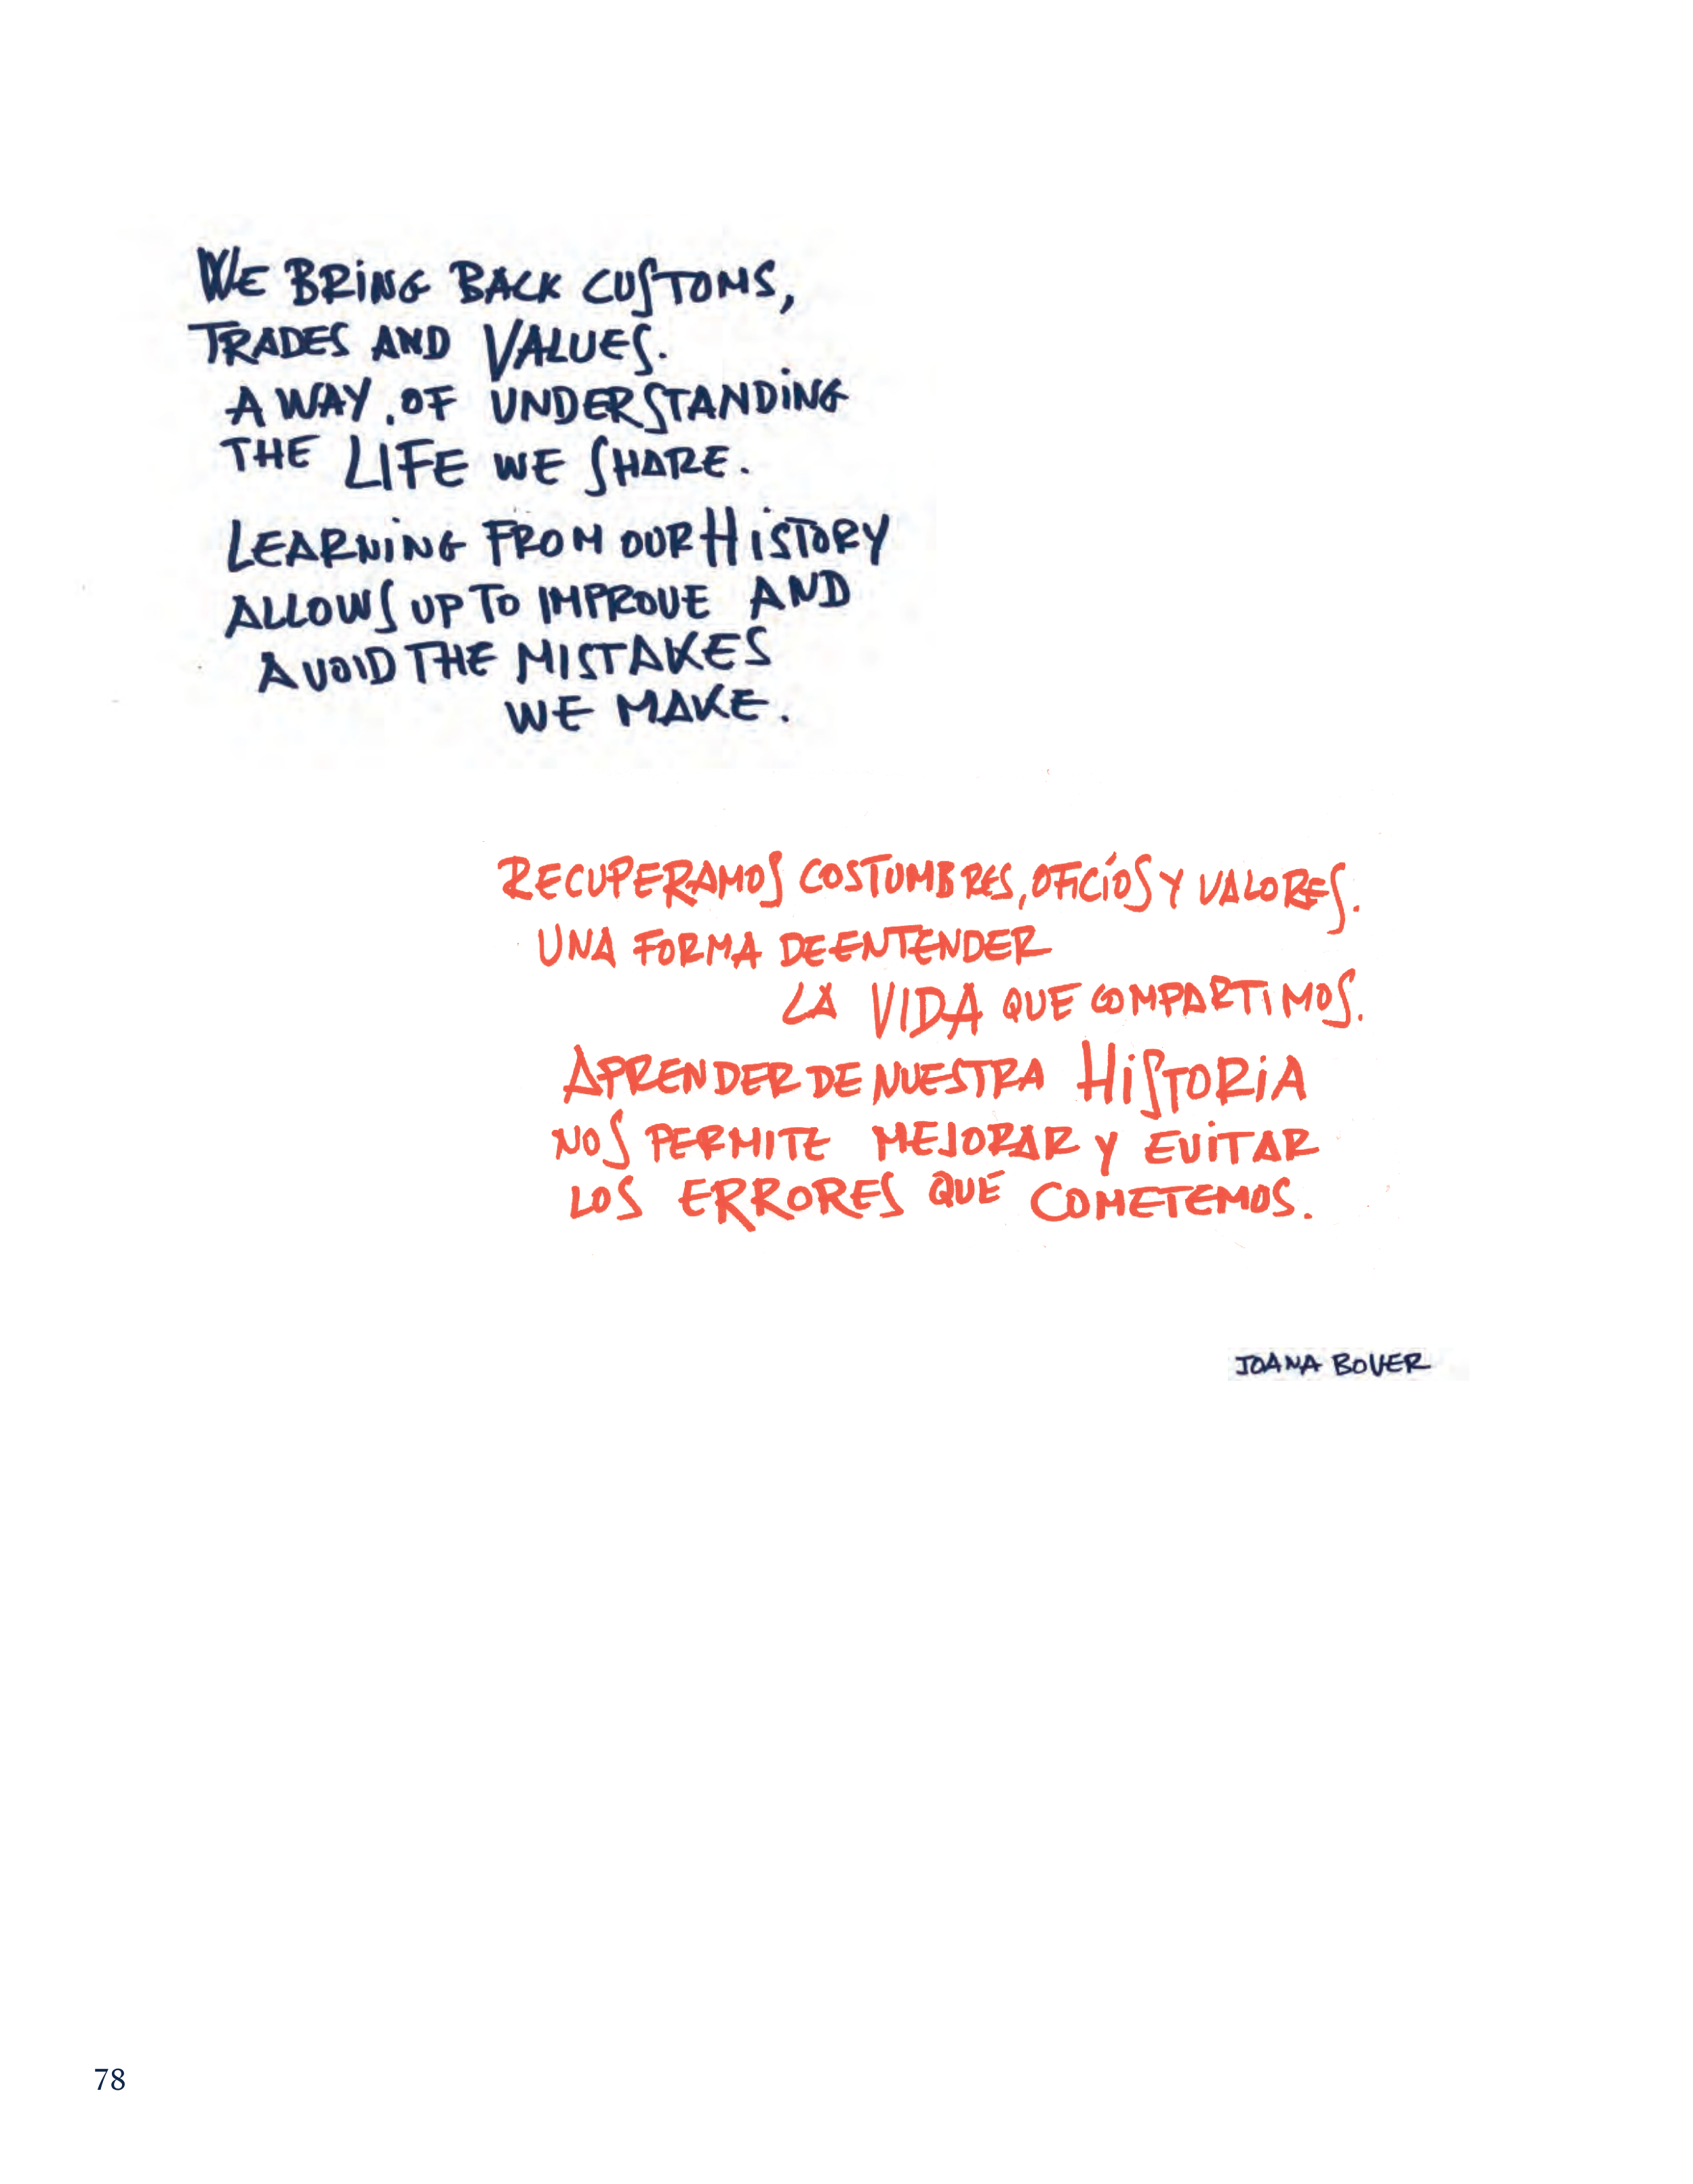 WE BRING BACK CUSTOMS,
TRADES AND VALUES.
A WAY.OF UNDERSTANDING
THE LIFE WE SHARE.
LEARNING FROM OUR HISTORY
ALLOWS UP TO IMPROVE AND
AVOID THE MISTAKES
WE MAKE.
RECUPERAMOS COSTUMBRES, OFICÍOS Y VALORES.
UNA FORMA DE ENTENDER
LA VIDA QUE COMPARTIMOS.
APRENDER DE NUESTRA HISTORIA
NOS PERMITE MEJORAR Y EVITAR
LOS ERRORES QUE COMETEMOS.
JOANA BOVER
78